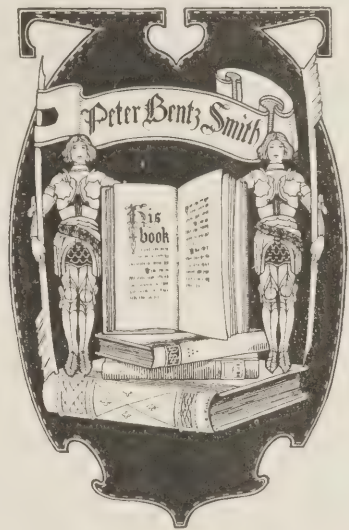 Peter Bentz Smith
His
book